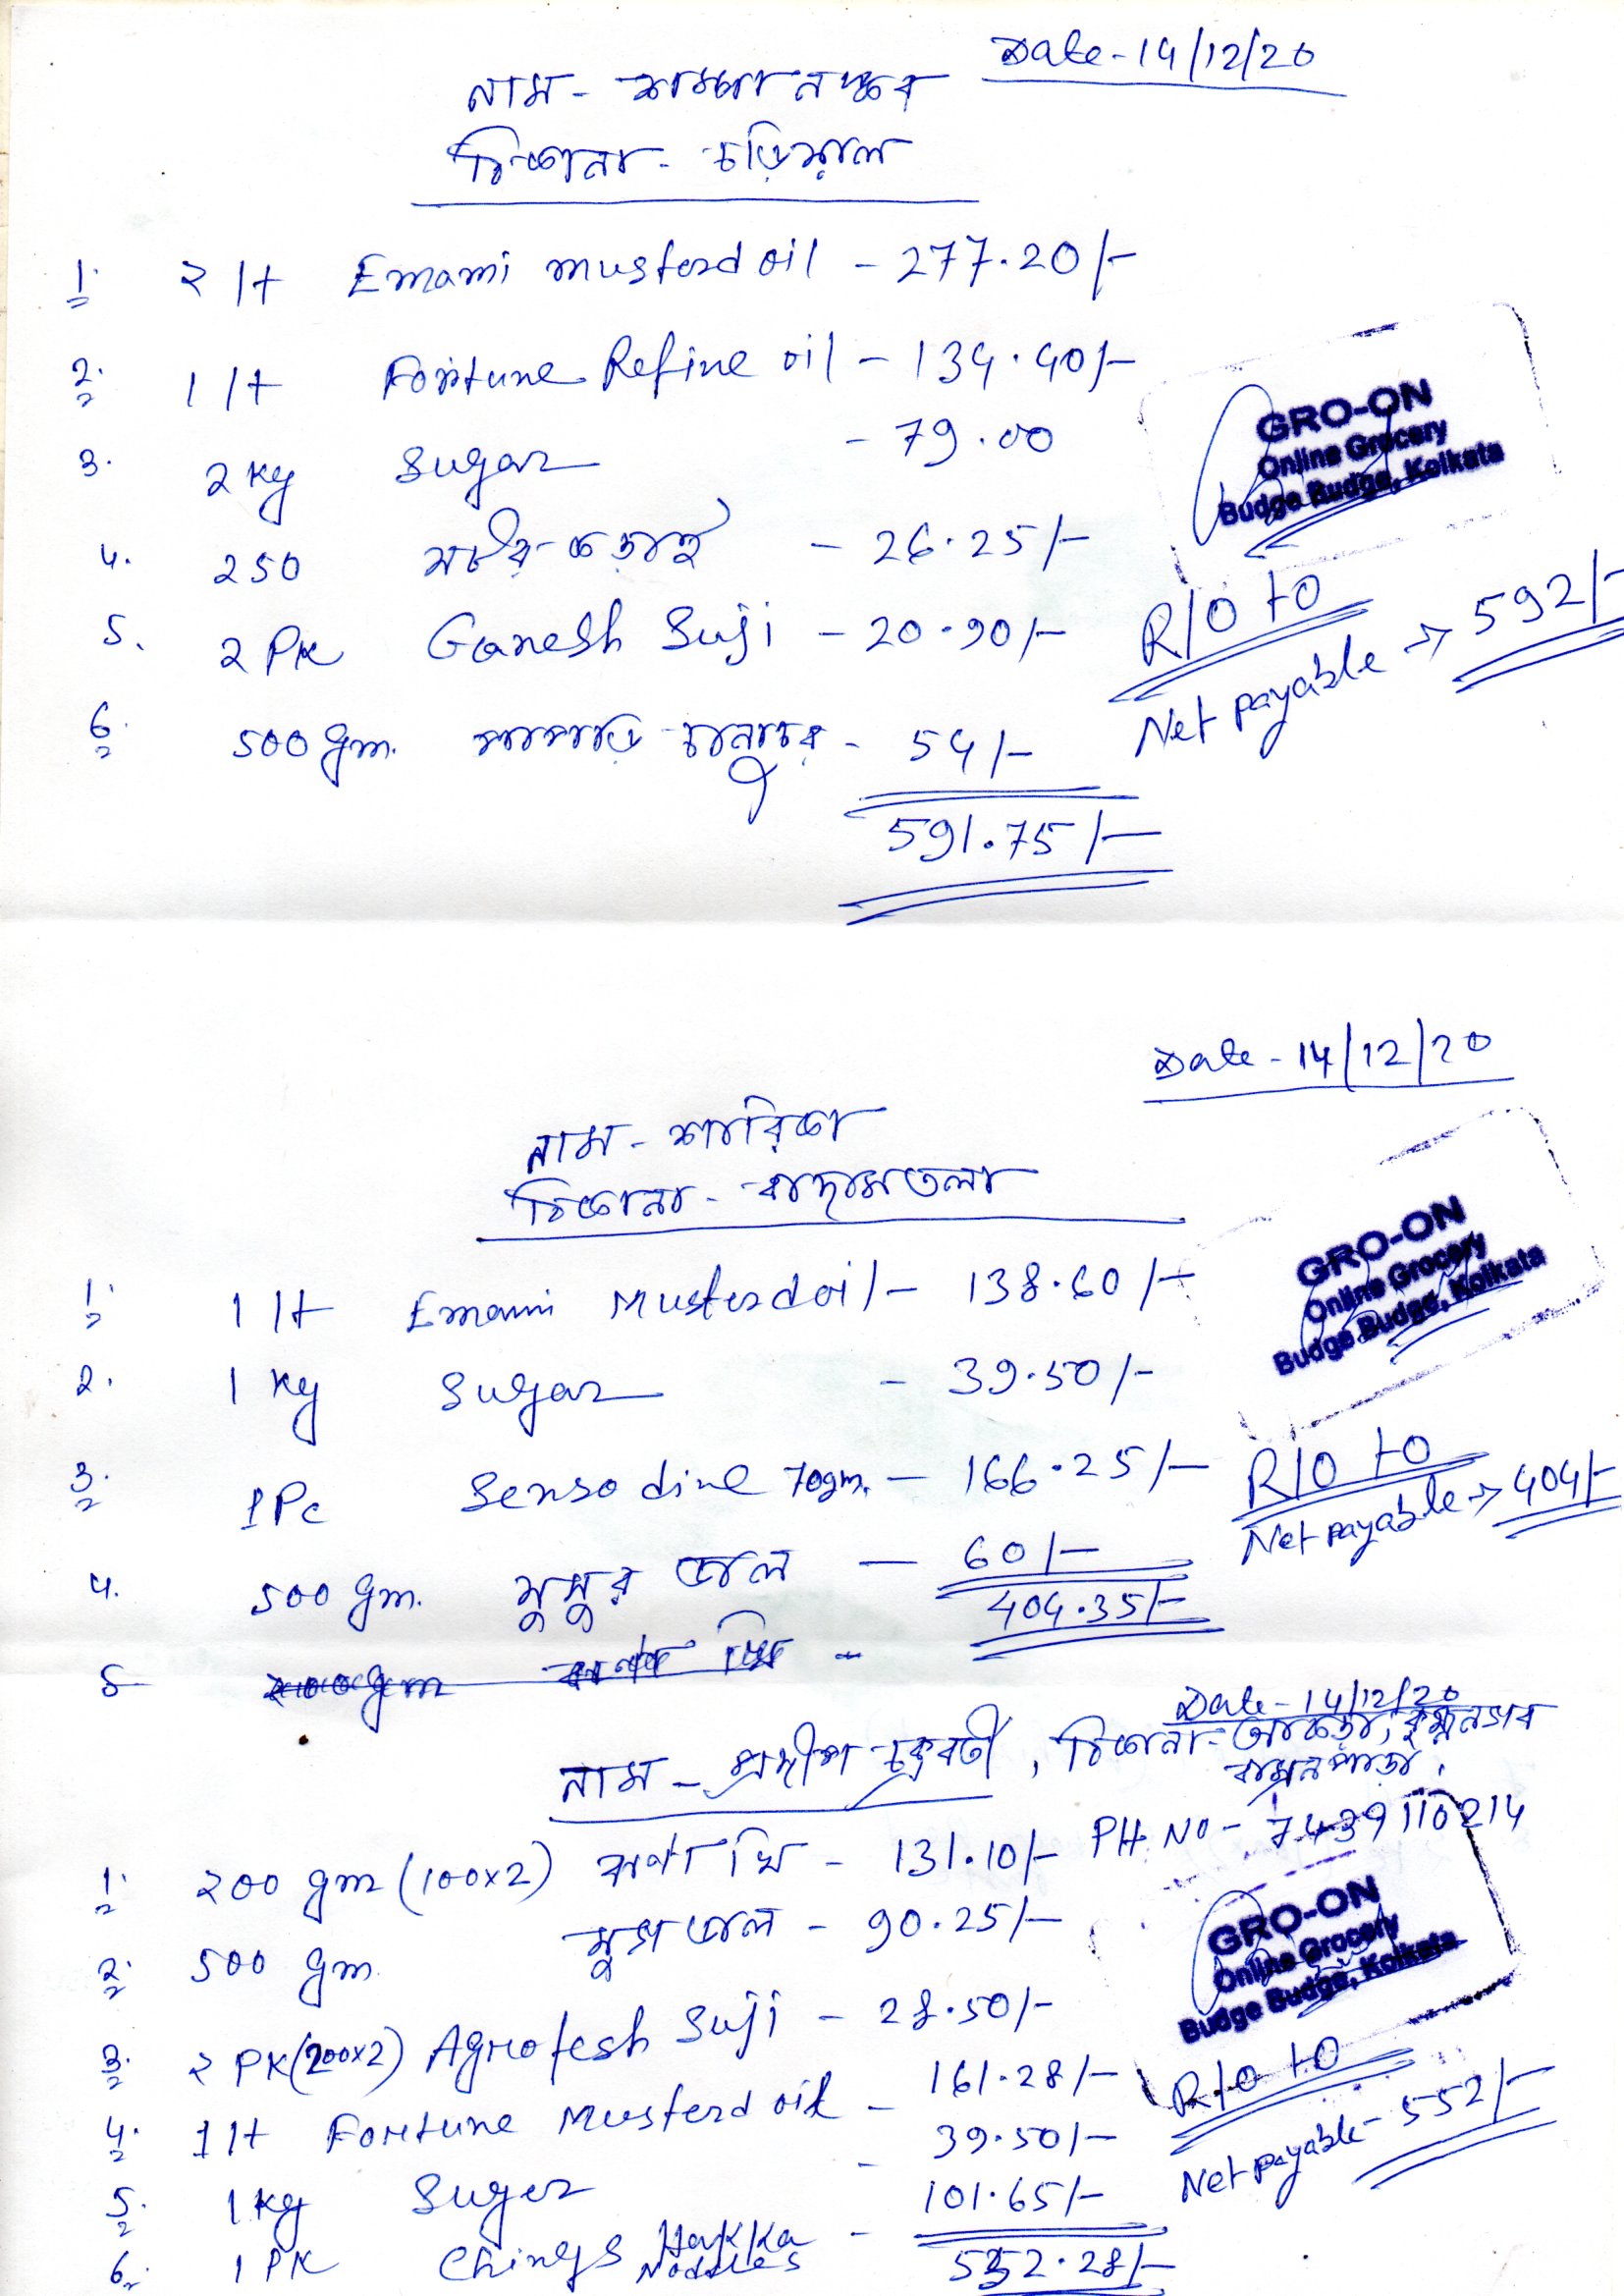 Date - 14/12/20
নাম - শম্পা নস্কর
ঠিকানা - চড়িয়াল
1. ২ lt Emami musterd oil - 277.20/-
2. 1 lt Fortune Refine oil - 134.40/-
3. 2 kg Sugar - 79.00
4. 250 মটর কড়াই - 26.25/-
5. 2 Pk Ganesh Suji - 20.90/-
6. 500 gm. পাপড়ি চানাচুর - 54/-
591.75/-
GRO-ON
Online Grocery
Budge Budge, Kolkata
R/O to
Net payable → 592/-
Date - 14/12/20
নাম - শারিতা
ঠিকানা - বাদামতলা
1. 1 lt Emami Musterd oil - 138.60/-
2. 1 kg Sugar - 39.50/-
3. 1 Pc Sensodine 70gm. - 166.25/-
4. 500 gm. মুসুর ডাল - 60/-
404.35/-
5 200gm ঝর্ণা ঘি -
GRO-ON
Online Grocery
Budge Budge, Kolkata
R/O to
Net payable → 404/-
Date - 14/12/20
নাম - প্রদীপ চক্রবর্তী, ঠিকানা -
বামুনপাড়া.
PH NO - 7439110214
1. ২00 gm (100x2) ঝর্ণা ঘি - 131.10/-
2. 500 gm মুগ ডাল - 90.25/-
3. ২ PK (200x2) Agrofesh Suji - 28.50/-
4. 1 lt Fortune Musterd oil - 161.28/-
5. 1 kg Suger - 39.50/-
6. 1 PK Chings Hakka Noddles - 101.65/-
552.28/-
GRO-ON
Online Grocery
Budge Budge, Kolkata
R/O to
Net payable - 552/-